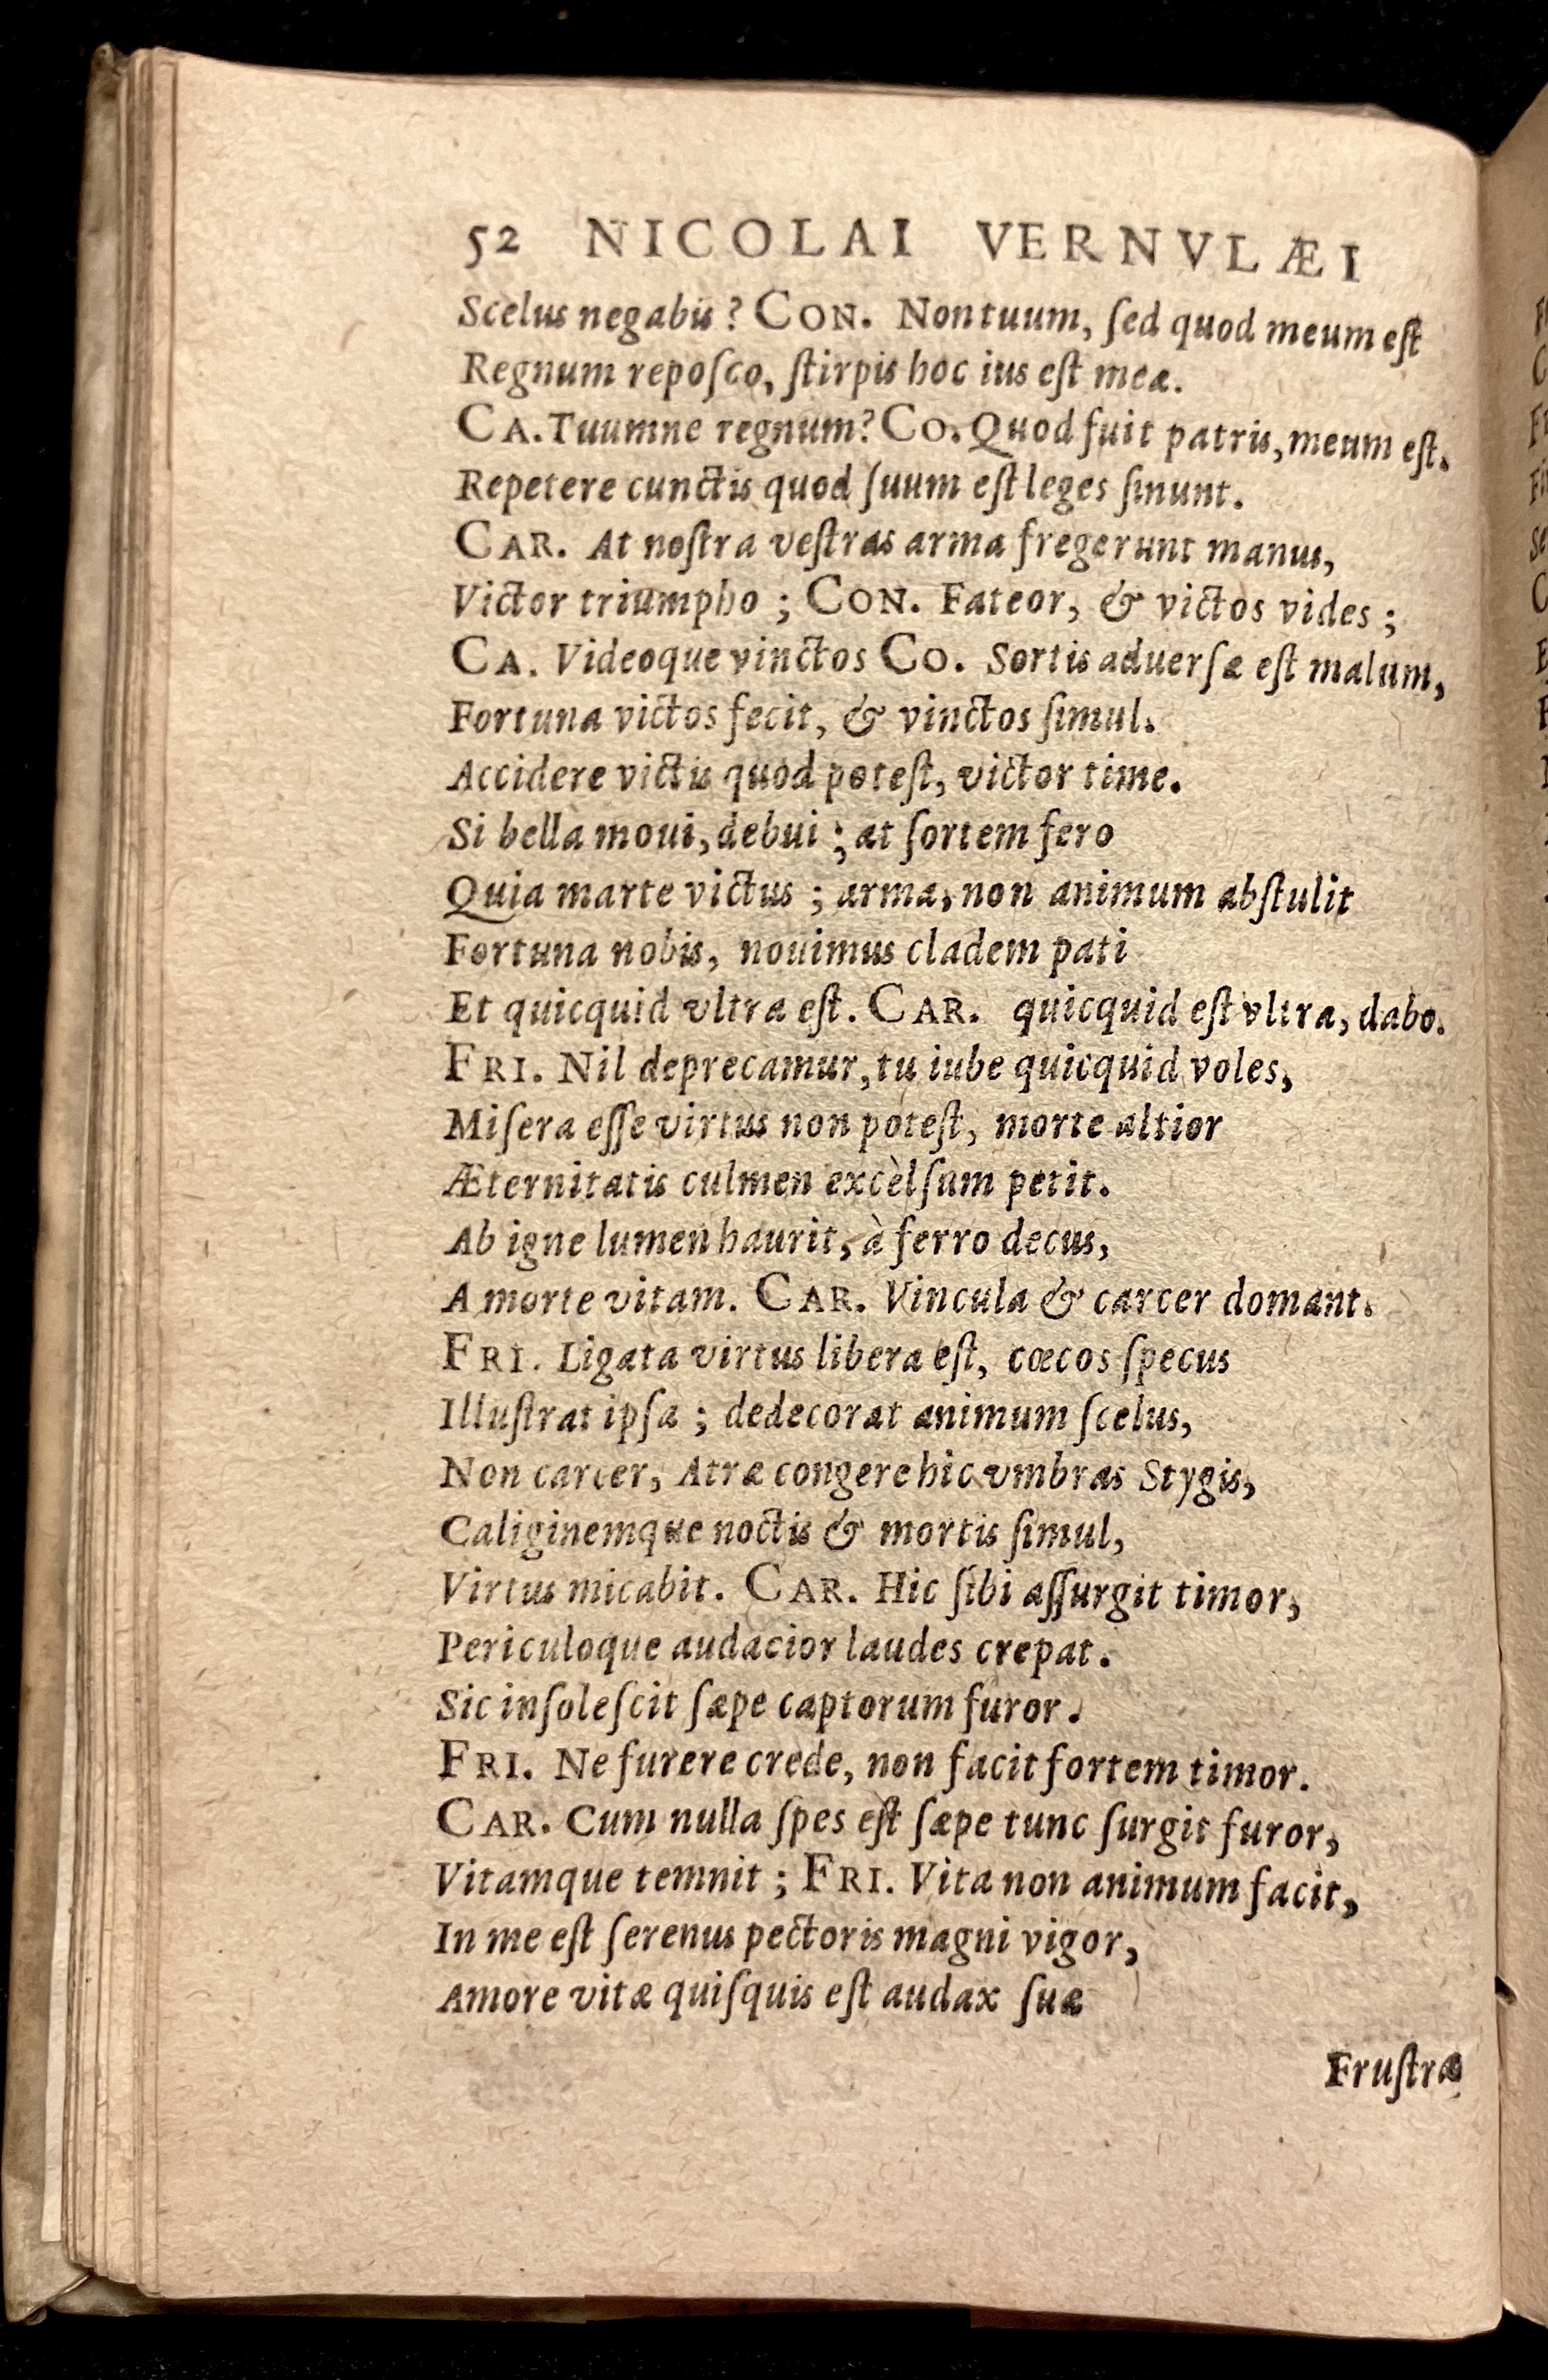 52 NICOLAI VERNVLÆI
Scelus negabis? CON. Non tuum, ſed quod meum eſt
Regnum repoſco, ſtirpis hoc ius eſt meæ.
CA. Tuumne regnum? CO. Quod fuit patris, meum eſt.
Repetere cunctis quod ſuum eſt leges ſinunt.
CAR. At noſtra veſtras arma fregerunt manus,
Victor triumpho; CON. Fateor, & victos vides;
CA. Videoque vinctos CO. Sortis aduerſæ eſt malum,
Fortuna victos fecit, & vinctos ſimul.
Accidere victis quod poteſt, victor time.
Si bella moui, debui; at ſortem fero
Quia marte victus; arma, non animum abſtulit
Fortuna nobis, nouimus cladem pati
Et quicquid vltra eſt. CAR. quicquid eſt vltra, dabo.
FRI. Nil deprecamur, tu iube quicquid voles,
Miſera eſſe virtus non poteſt, morte altior
Æternitatis culmen excèlſum petit.
Ab igne lumen haurit, à ferro decus,
A morte vitam. CAR. Vincula & carcer domant.
FRI. Ligata virtus libera eſt, cœcos ſpecus
Illuſtrat ipſa; dedecorat animum ſcelus,
Non carcer, Atræ congere hic vmbras Stygis,
Caliginemque noctis & mortis ſimul,
Virtus micabit. CAR. Hic ſibi aſſurgit timor,
Periculoque audacior laudes crepat.
Sic inſoleſcit ſæpe captorum furor.
FRI. Ne furere crede, non facit fortem timor.
CAR. Cum nulla ſpes eſt ſæpe tunc ſurgit furor,
Vitamque temnit; FRI. Vita non animum facit,
In me eſt ſerenus pectoris magni vigor,
Amore vitæ quiſquis eſt audax ſuæ
Fruſtra